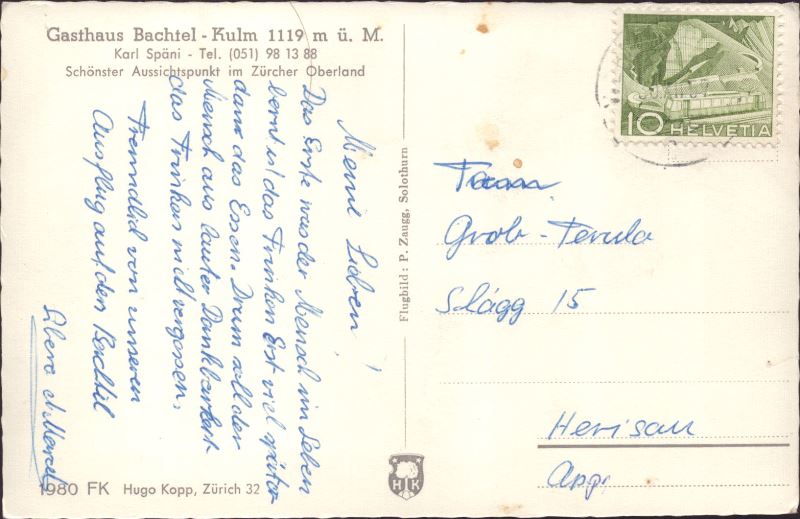 Gasthaus Bachtel - Kulm 1119 m ü. M.
Karl Späni - Tel. (051) 98 13 88
Schönster Aussichtspunkt im Zürcher Oberland
Meine Lieben!
Das Erste was der Mensch im Leben
lernt ist das Trinken Erst viel später
dann das Essen. Drum soll der
Mensch aus lauter Dankbarkeit
das Trinken nicht vergessen.
Freundlich von unseren
Ausflug auf den Bachtel
Libero & Marcel
1980 FK Hugo Kopp, Zürich 32
Flugbild: P. Zaugg, Solothurn
HK
10 HELVETIA
Fam.
Grob-
15
Herisau
App.